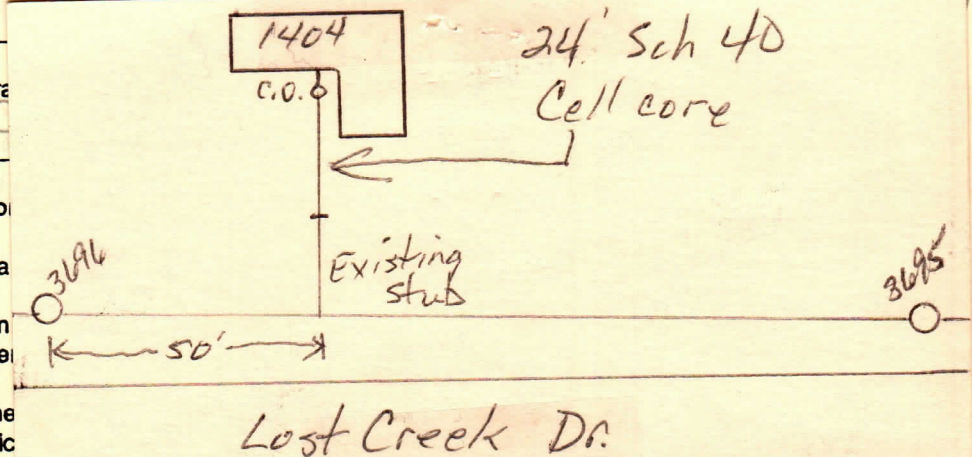 1404
24' Sch 40
Cell core
C.O.
Existing
stub
3696
3695
50'
Lost Creek Dr.